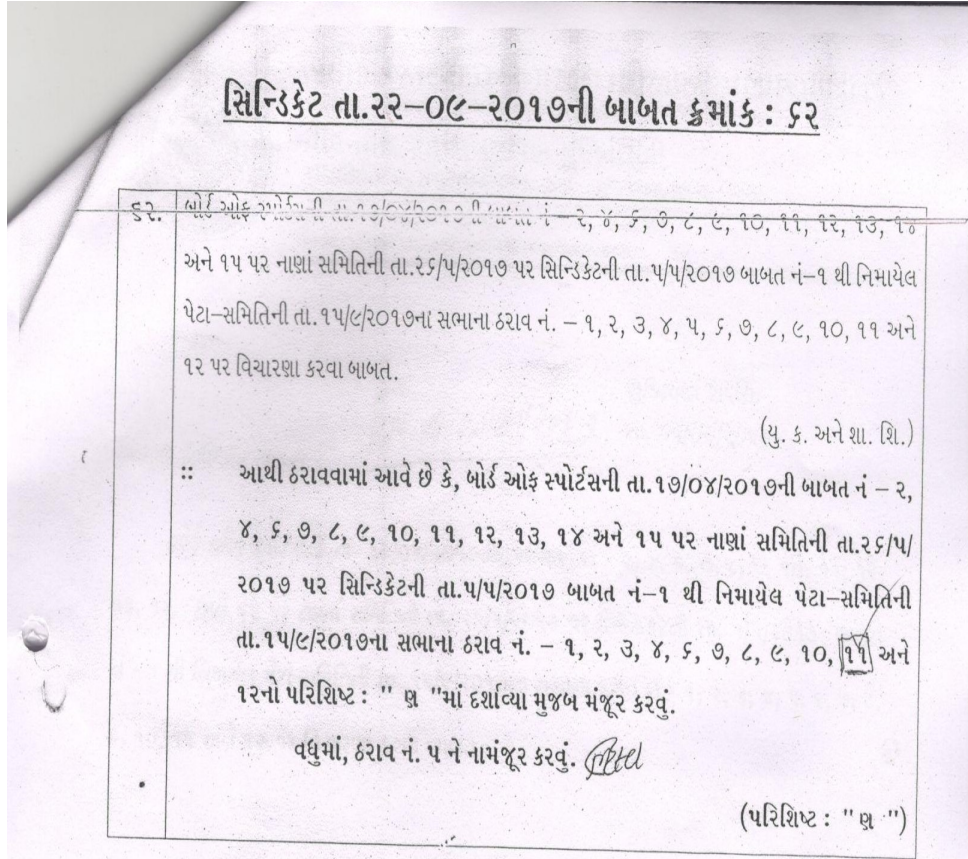 સિન્ડિકેટ તા.૨૨–૦૯–૨૦૧૭ની બાબત ક્રમાંક : ૬૨
૬૨. બોર્ડ ઓફ સ્પોર્ટસની તા.૧૭/૦૪/૨૦૧૭ની બાબત નં – ૨, ૪, ૬, ૭, ૮, ૯, ૧૦, ૧૧, ૧૨, ૧૩, ૧૪
અને ૧૫ પર નાણાં સમિતિની તા.૨૬/૫/૨૦૧૭ પર સિન્ડિકેટની તા.૫/૫/૨૦૧૭ બાબત નં–૧ થી નિમાયેલ
પેટા–સમિતિની તા.૧૫/૯/૨૦૧૭ના સભાના ઠરાવ નં. – ૧, ૨, ૩, ૪, ૫, ૬, ૭, ૮, ૯, ૧૦, ૧૧ અને
૧૨ પર વિચારણા કરવા બાબત.
(યુ. ક. અને શા. શિ.)
:: આથી ઠરાવવામાં આવે છે કે, બોર્ડ ઓફ સ્પોર્ટસની તા.૧૭/૦૪/૨૦૧૭ની બાબત નં – ૨,
૪, ૬, ૭, ૮, ૯, ૧૦, ૧૧, ૧૨, ૧૩, ૧૪ અને ૧૫ પર નાણાં સમિતિની તા.૨૬/૫/
૨૦૧૭ પર સિન્ડિકેટની તા.૫/૫/૨૦૧૭ બાબત નં–૧ થી નિમાયેલ પેટા–સમિતિની
તા.૧૫/૯/૨૦૧૭ના સભાના ઠરાવ નં. – ૧, ૨, ૩, ૪, ૬, ૭, ૮, ૯, ૧૦, ૧૧ અને
૧૨નો પરિશિષ્ટ : " ણ "માં દર્શાવ્યા મુજબ મંજૂર કરવું.
વધુમાં, ઠરાવ નં. ૫ ને નામંજૂર કરવું.
(પરિશિષ્ટ : " ણ ")